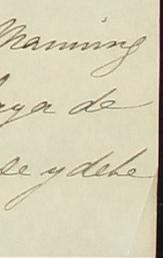 Manning
aya de
se y debe